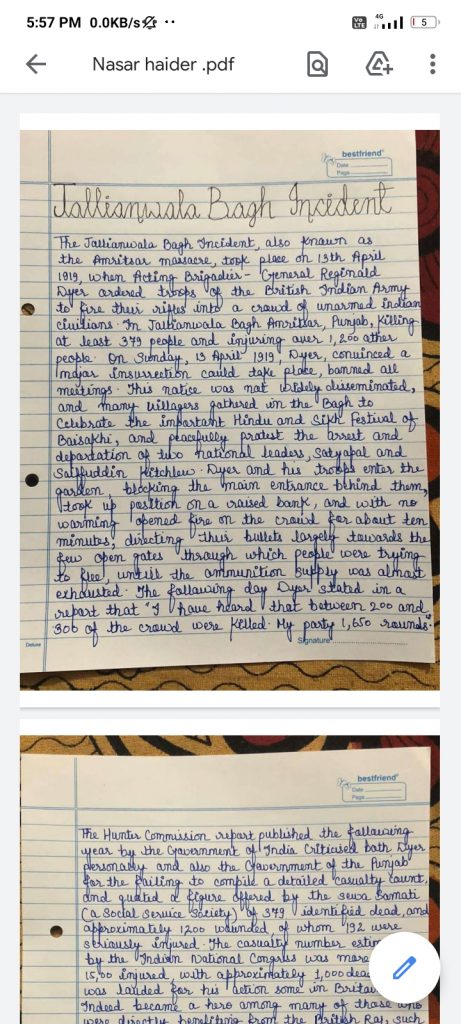 5:57 PM 0.0KB/s
Vo LTE 4G 5
Nasar haider .pdf
bestfriend
Date
Page
Jallianwala Bagh Incident
The Jallianwala Bagh Incident, also known as
the Amritsar massacre, took place on 13th April
1919, when Acting Brigadier - General Reginald
Dyer ordered troops of the British Indian Army
to fire their rifles into a crowd of unarmed indian
civilians. In Jallianwala Bagh Amritsar, Punjab, Killing
at least 379 people and injuring over 1,200 other
people. On Sunday, 13 April 1919, Dyer, convinced a
major insurrection could take place, banned all
meetings. This notice was not widely disseminated,
and many villagers gathered in the Bagh to
Celebrate the important Hindu and Sikh Festival of
Baisakhi, and peacefully protest the arrest and
deportation of two national leaders, Satyapal and
Saifuddin Kitchlew. Dyer and his troops enter the
garden, blocking the main entrance behind them,
took up position on a raised bank, and with no
warning opened fire on the crowd for about ten
minutes, directing their bullets largely towards the
few open gates through which people were trying
to flee, until the ammunition supply was almost
exhausted. The following day Dyer stated in a
report that "I have heard that between 200 and
300 of the crowd were killed. My party 1,650 rounds."
Deluxe
Signature
bestfriend
Date
Page
The Hunter Commission report published the following
year by the Government of India Criticised both Dyer
personally and also the Government of the Punjab
for the failing to compile a detailed casualty count,
and quoted a figure offered by the sewa Samati
(a Social Service Society) of 379 identified dead, and
approximately 1200 wounded, of whom 192 were
seriously injured. The casualty number estim
by the Indian National Congress was more
15,00 injured, with approximately 1,000 dead
was lauded for his action some in Britai
Indeed became a hero among many of those who
were directly benefiting from the British Raj, such